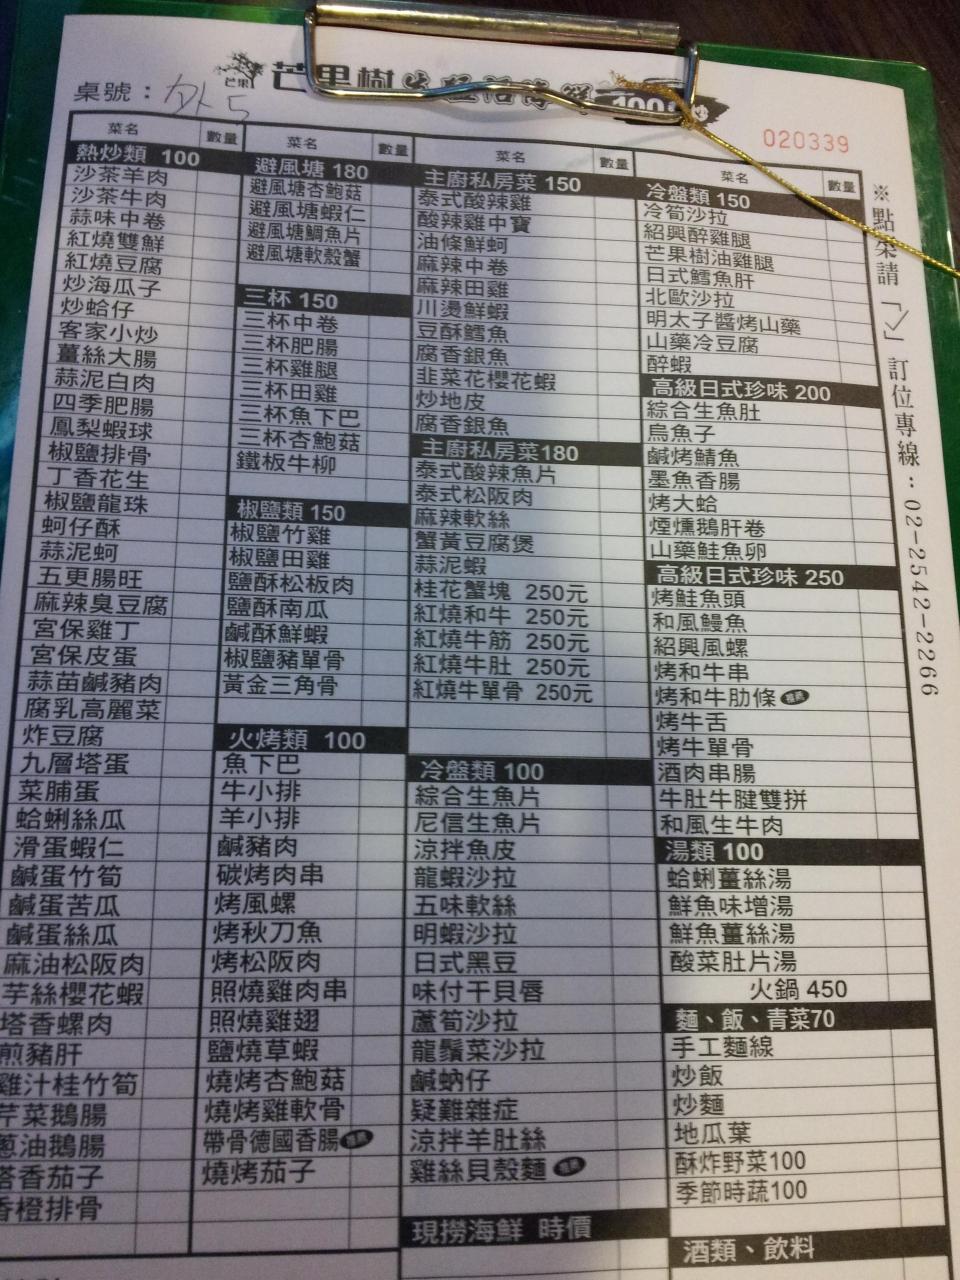 芒果
芒果樹生猛活海鮮 100
桌號：外5
020339
菜名 數量
熱炒類 100
沙茶羊肉
沙茶牛肉
蒜味中卷
紅燒雙鮮
紅燒豆腐
炒海瓜子
炒蛤仔
客家小炒
薑絲大腸
蒜泥白肉
四季肥腸
鳳梨蝦球
椒鹽排骨
丁香花生
椒鹽龍珠
蚵仔酥
蒜泥蚵
五更腸旺
麻辣臭豆腐
宮保雞丁
宮保皮蛋
蒜苗鹹豬肉
腐乳高麗菜
炸豆腐
九層塔蛋
菜脯蛋
蛤蜊絲瓜
滑蛋蝦仁
鹹蛋竹筍
鹹蛋苦瓜
鹹蛋絲瓜
麻油松阪肉
芋絲櫻花蝦
塔香螺肉
煎豬肝
雞汁桂竹筍
芹菜鵝腸
蔥油鵝腸
塔香茄子
香橙排骨
菜名 數量
避風塘 180
避風塘杏鮑菇
避風塘蝦仁
避風塘鯛魚片
避風塘軟殼蟹
三杯 150
三杯中卷
三杯肥腸
三杯雞腿
三杯田雞
三杯魚下巴
三杯杏鮑菇
鐵板牛柳
椒鹽類 150
椒鹽竹雞
椒鹽田雞
鹽酥松板肉
鹽酥南瓜
鹹酥鮮蝦
椒鹽豬單骨
黃金三角骨
火烤類 100
魚下巴
牛小排
羊小排
鹹豬肉
碳烤肉串
烤風螺
烤秋刀魚
烤松阪肉
照燒雞肉串
照燒雞翅
鹽燒草蝦
燒烤杏鮑菇
燒烤雞軟骨
帶骨德國香腸
燒烤茄子
菜名 數量
主廚私房菜 150
泰式酸辣雞
酸辣雞中寶
油條鮮蚵
麻辣中卷
麻辣田雞
川燙鮮蝦
豆酥鱈魚
腐香銀魚
韭菜花櫻花蝦
炒地皮
腐香銀魚
主廚私房菜180
泰式酸辣魚片
泰式松阪肉
麻辣軟絲
蟹黃豆腐煲
蒜泥蝦
桂花蟹塊 250元
紅燒和牛 250元
紅燒牛筋 250元
紅燒牛肚 250元
紅燒牛單骨 250元
冷盤類 100
綜合生魚片
尼信生魚片
涼拌魚皮
龍蝦沙拉
五味軟絲
明蝦沙拉
日式黑豆
味付干貝唇
蘆筍沙拉
龍鬚菜沙拉
鹹蚋仔
疑難雜症
涼拌羊肚絲
雞絲貝殼麵
現撈海鮮 時價
菜名 數量
冷盤類 150
冷筍沙拉
紹興醉雞腿
芒果樹油雞腿
日式鱈魚肝
北歐沙拉
明太子醬烤山藥
山藥冷豆腐
醉蝦
高級日式珍味 200
綜合生魚肚
烏魚子
鹹烤鯖魚
墨魚香腸
烤大蛤
煙燻鵝肝卷
山藥鮭魚卵
高級日式珍味 250
烤鮭魚頭
和風鰻魚
紹興風螺
烤和牛串
烤和牛肋條
烤牛舌
烤牛單骨
酒肉串腸
牛肚牛腱雙拼
和風生牛肉
湯類 100
蛤蜊薑絲湯
鮮魚味增湯
鮮魚薑絲湯
酸菜肚片湯
火鍋 450
麵、飯、青菜70
手工麵線
炒飯
炒麵
地瓜葉
酥炸野菜100
季節時蔬100
酒類、飲料
※點菜請「✓」訂位專線：02-2542-2266